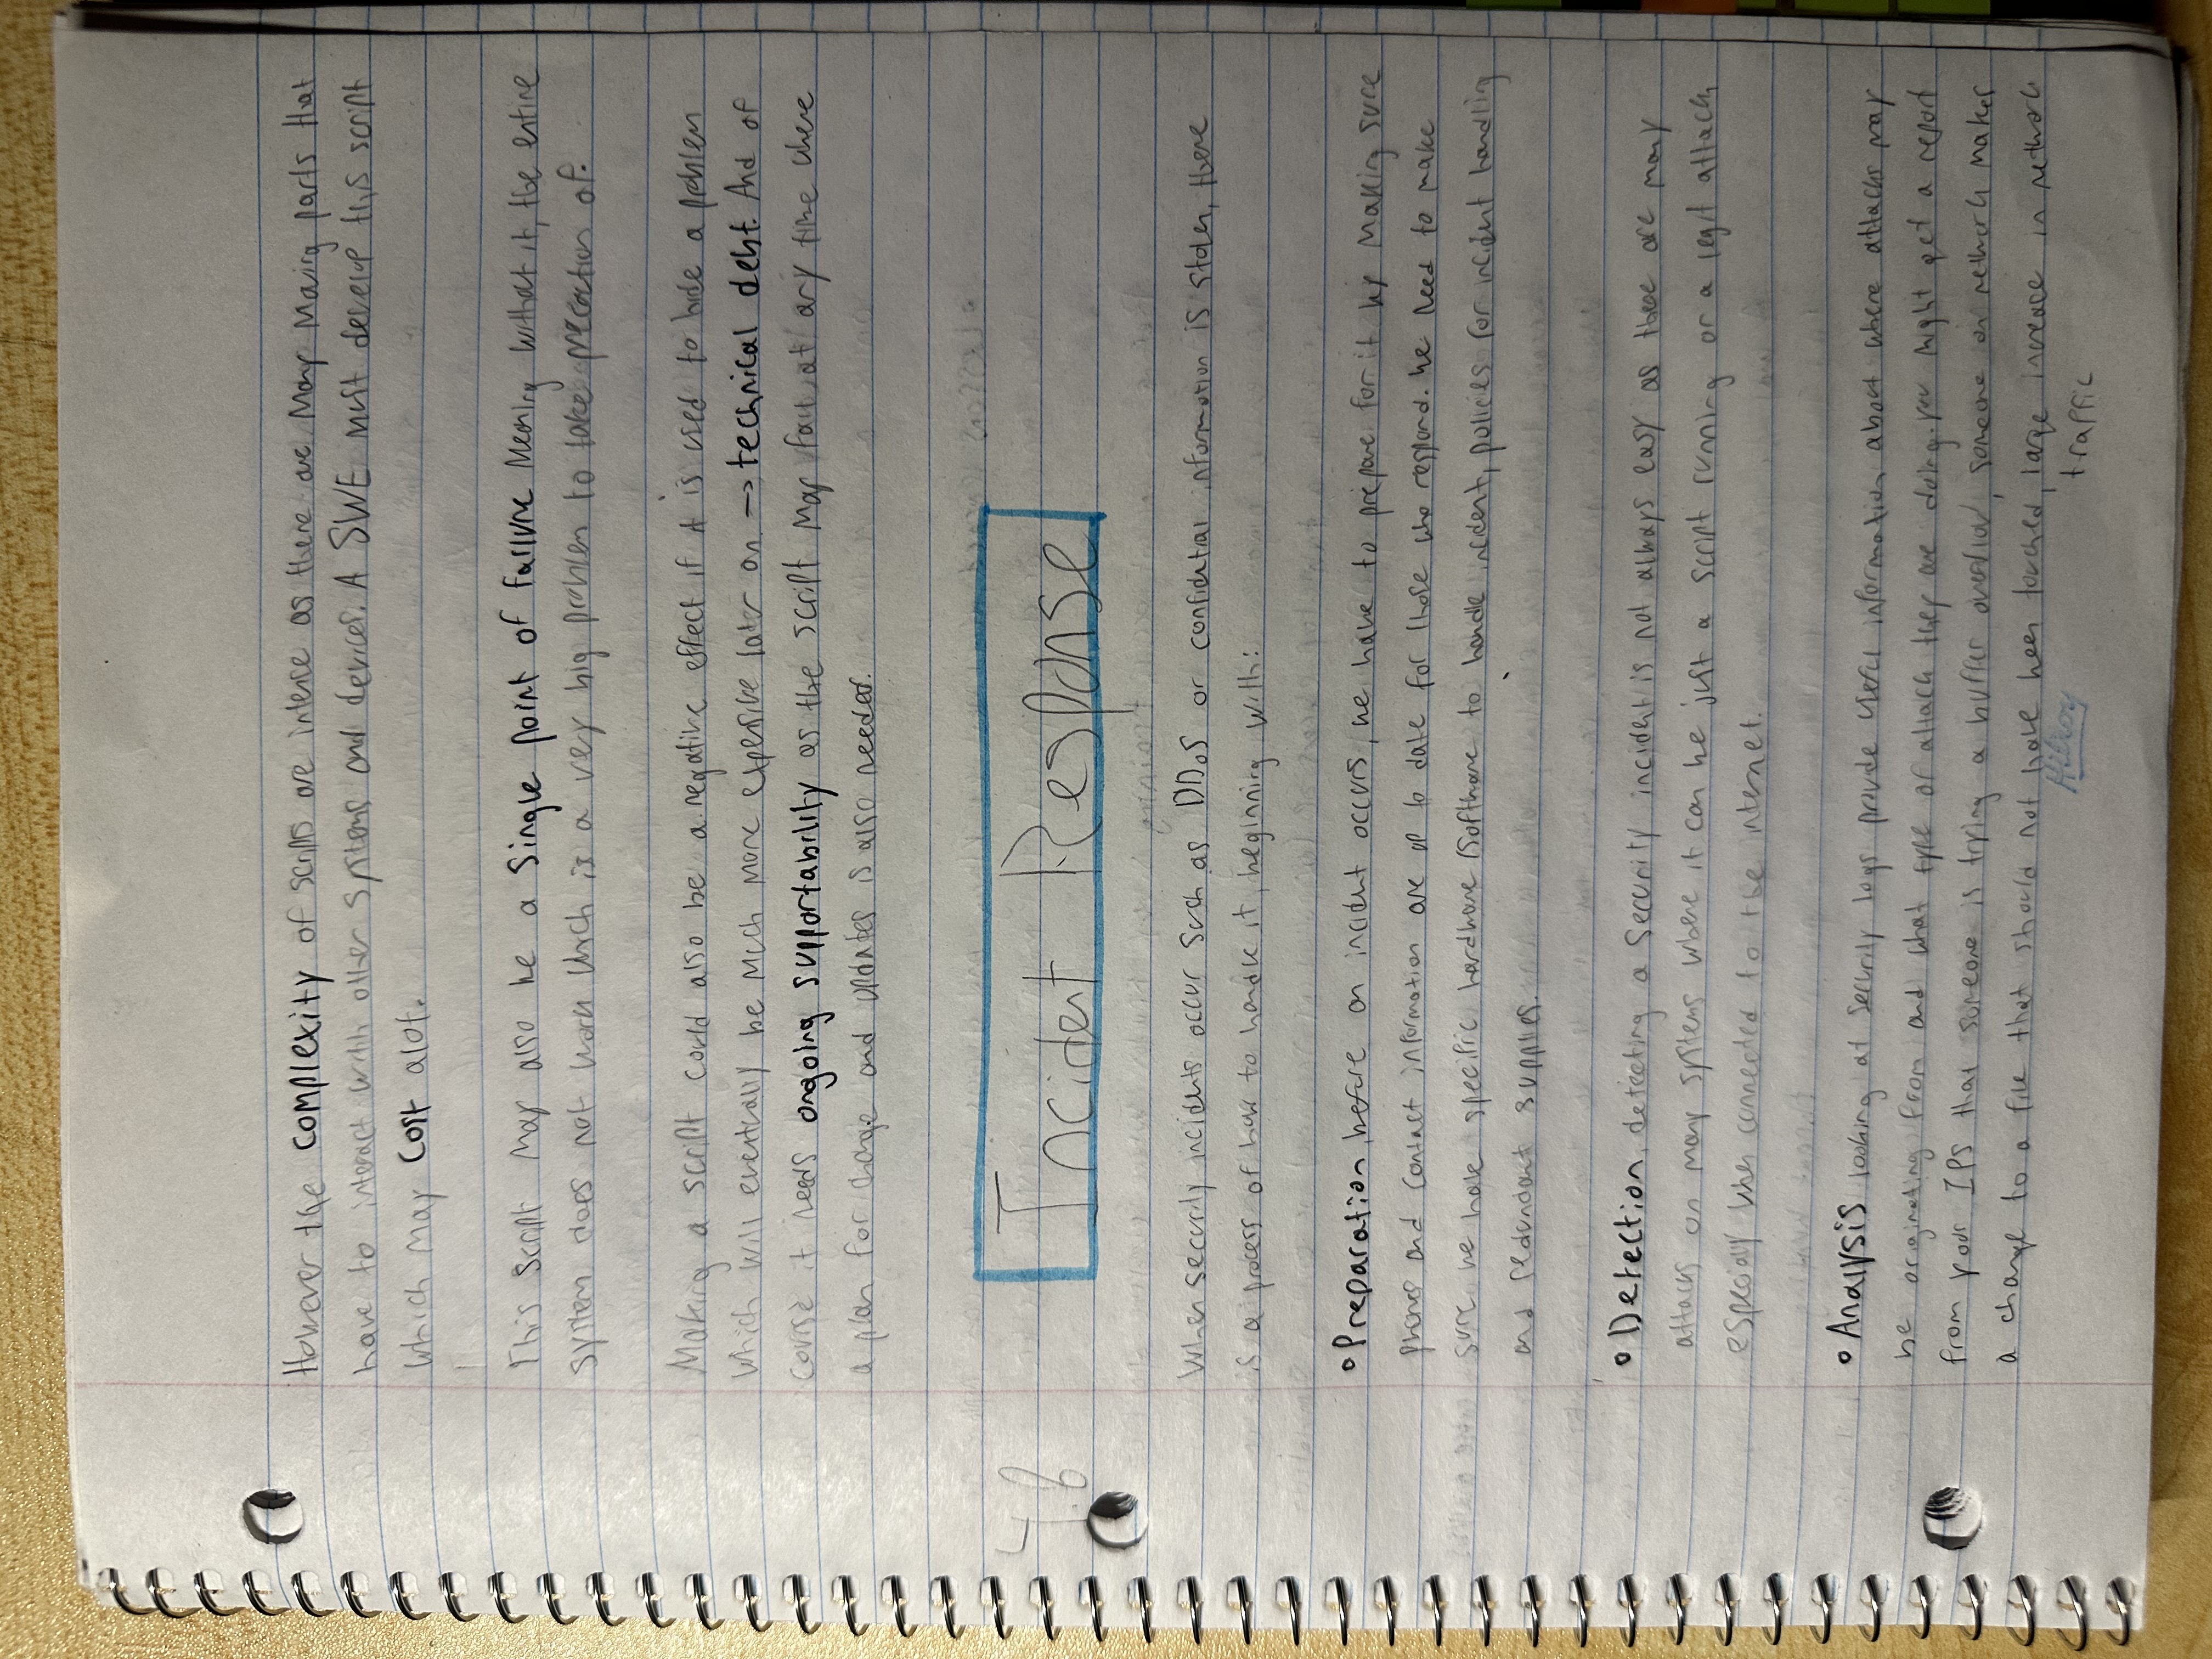 However the complexity of scripts are intense as there are many moving parts that
have to interact with other systems and devices. A SWE must develop this script
which may cost alot.
This script may also be a single point of failure meaning without it, the entire
system does not work which is a very big problem to take precaution of.
Making a script could also be a negative effect if it is used to hide a problem
which will eventually be much more expensive later on → technical debt. And of
course it needs ongoing supportability as the script may fail at any time where
a plan for change and updates is also needed.
4.8
Incident Response
When security incidents occur such as DDoS or confidential information is stolen, there
is a process of how to handle it, beginning with:
• Preparation, before an incident occurs, we have to prepare for it by making sure
phones and contact information are up to date for those who respond. We need to make
sure we have specific hardware/software to handle incident, policies for incident handling
and redundant supplies.
• Detection, detecting a security incident is not always easy as there are many
attacks on many systems where it can be just a script running or a legit attack
especially when connected to the internet.
• Analysis looking at security logs provide useful information about where attacks may
be originating from and what type of attack they are doing. you might get a report
from your IPS that someone is trying a buffer overflow, someone on network makes
a change to a file that should not have been touched, large increase in network
traffic
Hilroy